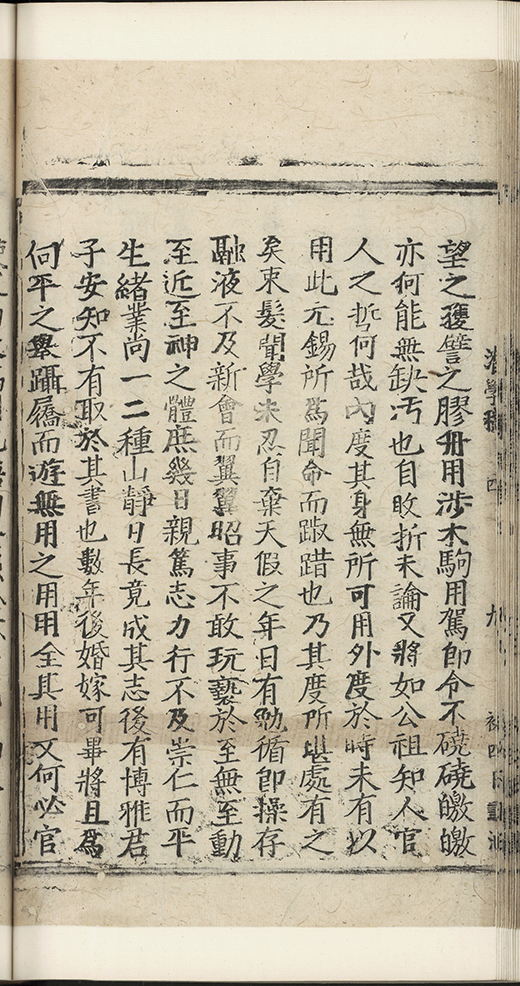 望之獲讐之膠舟用涉木駒用駕即令不磽磽皦皦
亦何能無缺汚也自敗折未論又將如公祖知人官
人之哲何哉內度其身無所可用外度於時未有以
用此元錫所爲聞命而踧踖也乃其度所堪處有之
矣束髮聞學未忍自棄天假之年日有勉循即操存
融液不及新會而翼翼昭事不敢玩褻於至無至動
至近至神之體庶幾日親篤志力行不及崇仁而平
生緒業尚一二種山靜日長竟成其志後有博雅君
子安知不有取於其書也數年後婚嫁可畢將且爲
何平之舉躡屩而遊無用之用用全其用又何必官
潛學稿 四 九